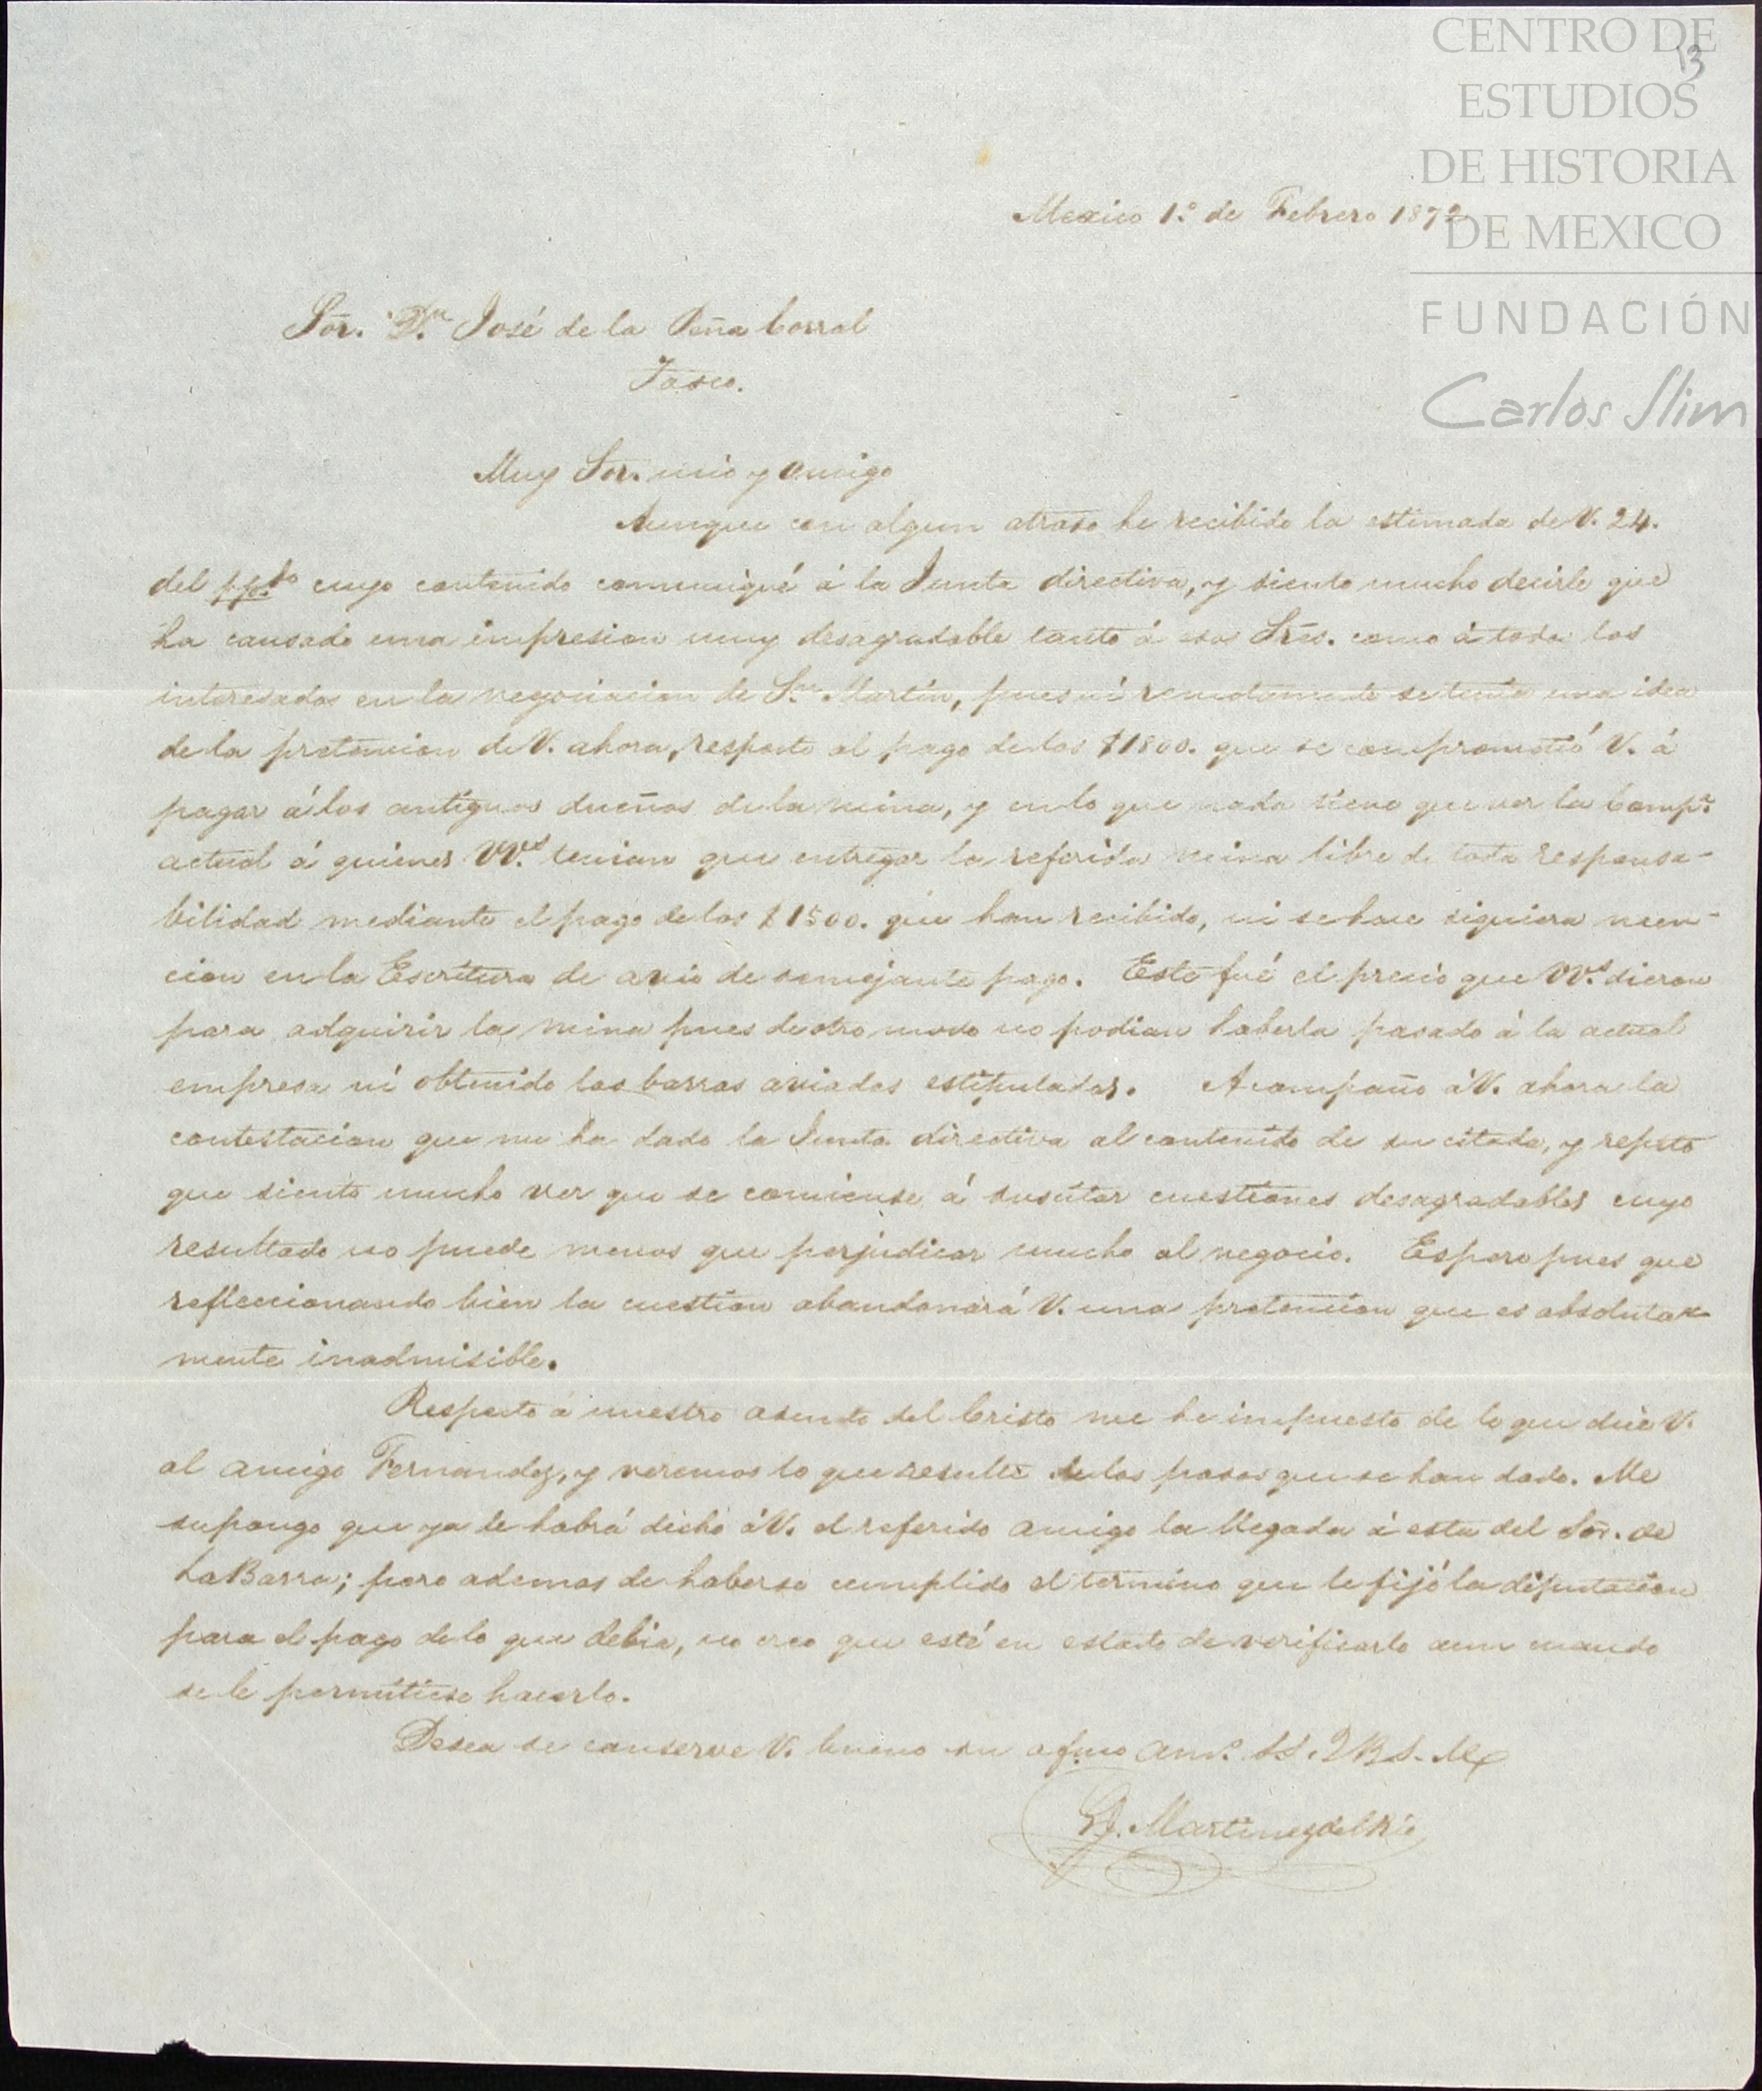 CENTRO DE
ESTUDIOS
DE HISTORIA
DE MEXICO
FUNDACIÓN
Carlos Slim
13
Mexico 1º. de Febrero 1872
Sōr. Dn. José de la Peña Corral
Tasco.
Muy Sōr. mio y amigo
Aunque con algun atraso he recibido la estimada de V. 24.
del ppdo. cuyo contenido comuniqué á la Junta directiva, y siento mucho decirle que
ha causado una impresion muy desagradable tanto á esos Sres. como á todos los
interesados en la negociacion de Sn. Martin, pues ni remotamente se tenía una idea
de la pretencion de V. ahora, respecto al pago de los $1800. que se comprometió V. á
pagar á los antiguos dueños de la mina, y en lo que nada tiene que ver la Compª.
actual á quienes VVs. tenian que entregar la referida mina libre de toda responsa-
bilidad mediante el pago de los $1500. que han recibido, ni se hace siquiera men-
cion en la Escritura de avio de semejante pago. Este fué el precio que VVs. dieron
para adquirir la mina pues de otro modo no podian haberla pasado á la actual
empresa ni obtenido las barras aviadas estipuladas. Acompaño á V. ahora la
contestacion que me ha dado la Junta directiva al contenido de su citada, y repito
que siento mucho ver que se comiense á sucitar cuestiones desagradables cuyo
resultado no puede menos que perjudicar mucho al negocio. Espero pues que
refleccionando bien la cuestion abandonará V. una pretencion que es absoluta-
mente inadmisible.
Respecto á nuestro asunto del Cristo me he impuesto de lo que dice V.
al amigo Fernandez, y veremos lo que resulte de los pasos que se han dado. Me
supongo que ya le habrá dicho á V. el referido amigo la llegada á esta del Sōr. de
La Barra; pero ademas de haberse cumplido el termino que le fijó la diputacion
para el pago de lo que debia, no creo que esté en estado de verificarlo aun cuando
se le permitiese hacerlo.
Desea se conserve V. bueno su afmo amo. SS. Q B S. M
G. Martinez del Rio